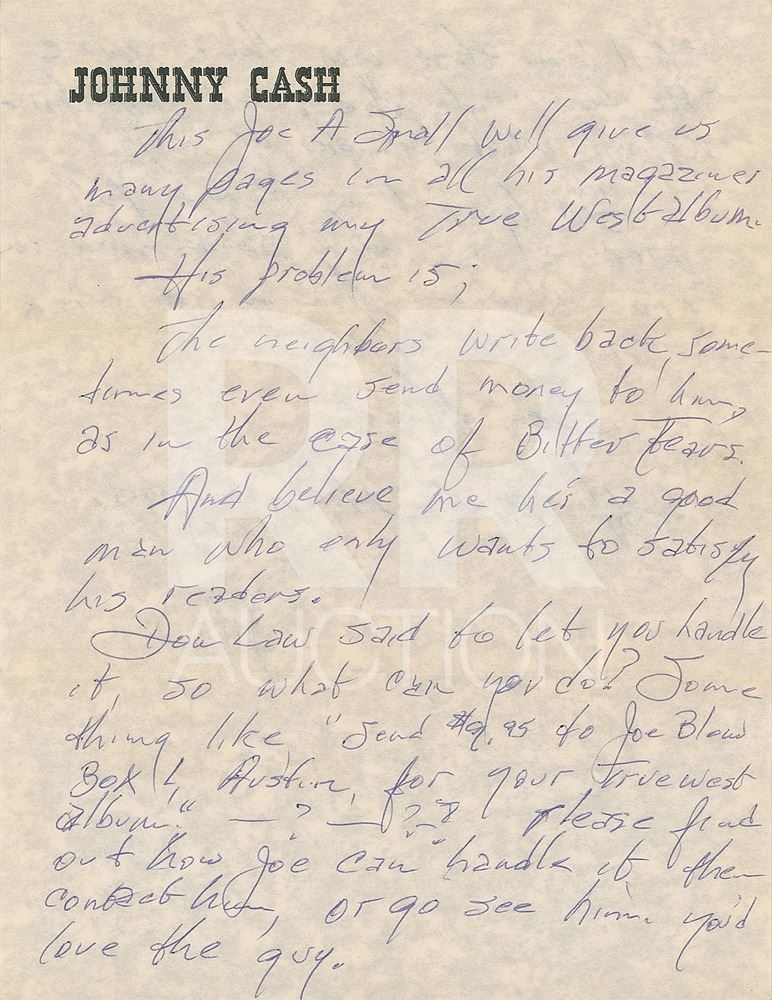 JOHNNY CASH
This Joe A Small will give us
many pages in all his magazines
advertising my True West album.
His problem is;
The neighbors write back, some-
times even send money to him,
as in the case of Bitter Tears.
And believe me he's a good
man who only wants to satisfy
his readers.
Don Law said to let you handle
it, so what can you do? Some
thing like "Send $9.95 to Joe Blow
Box 1, Austin, for your True west
album." — ? — ? - ? Please find
out how Joe can handle it then
contact him, or go see him. you'd
love the guy.
RR
AUCTION